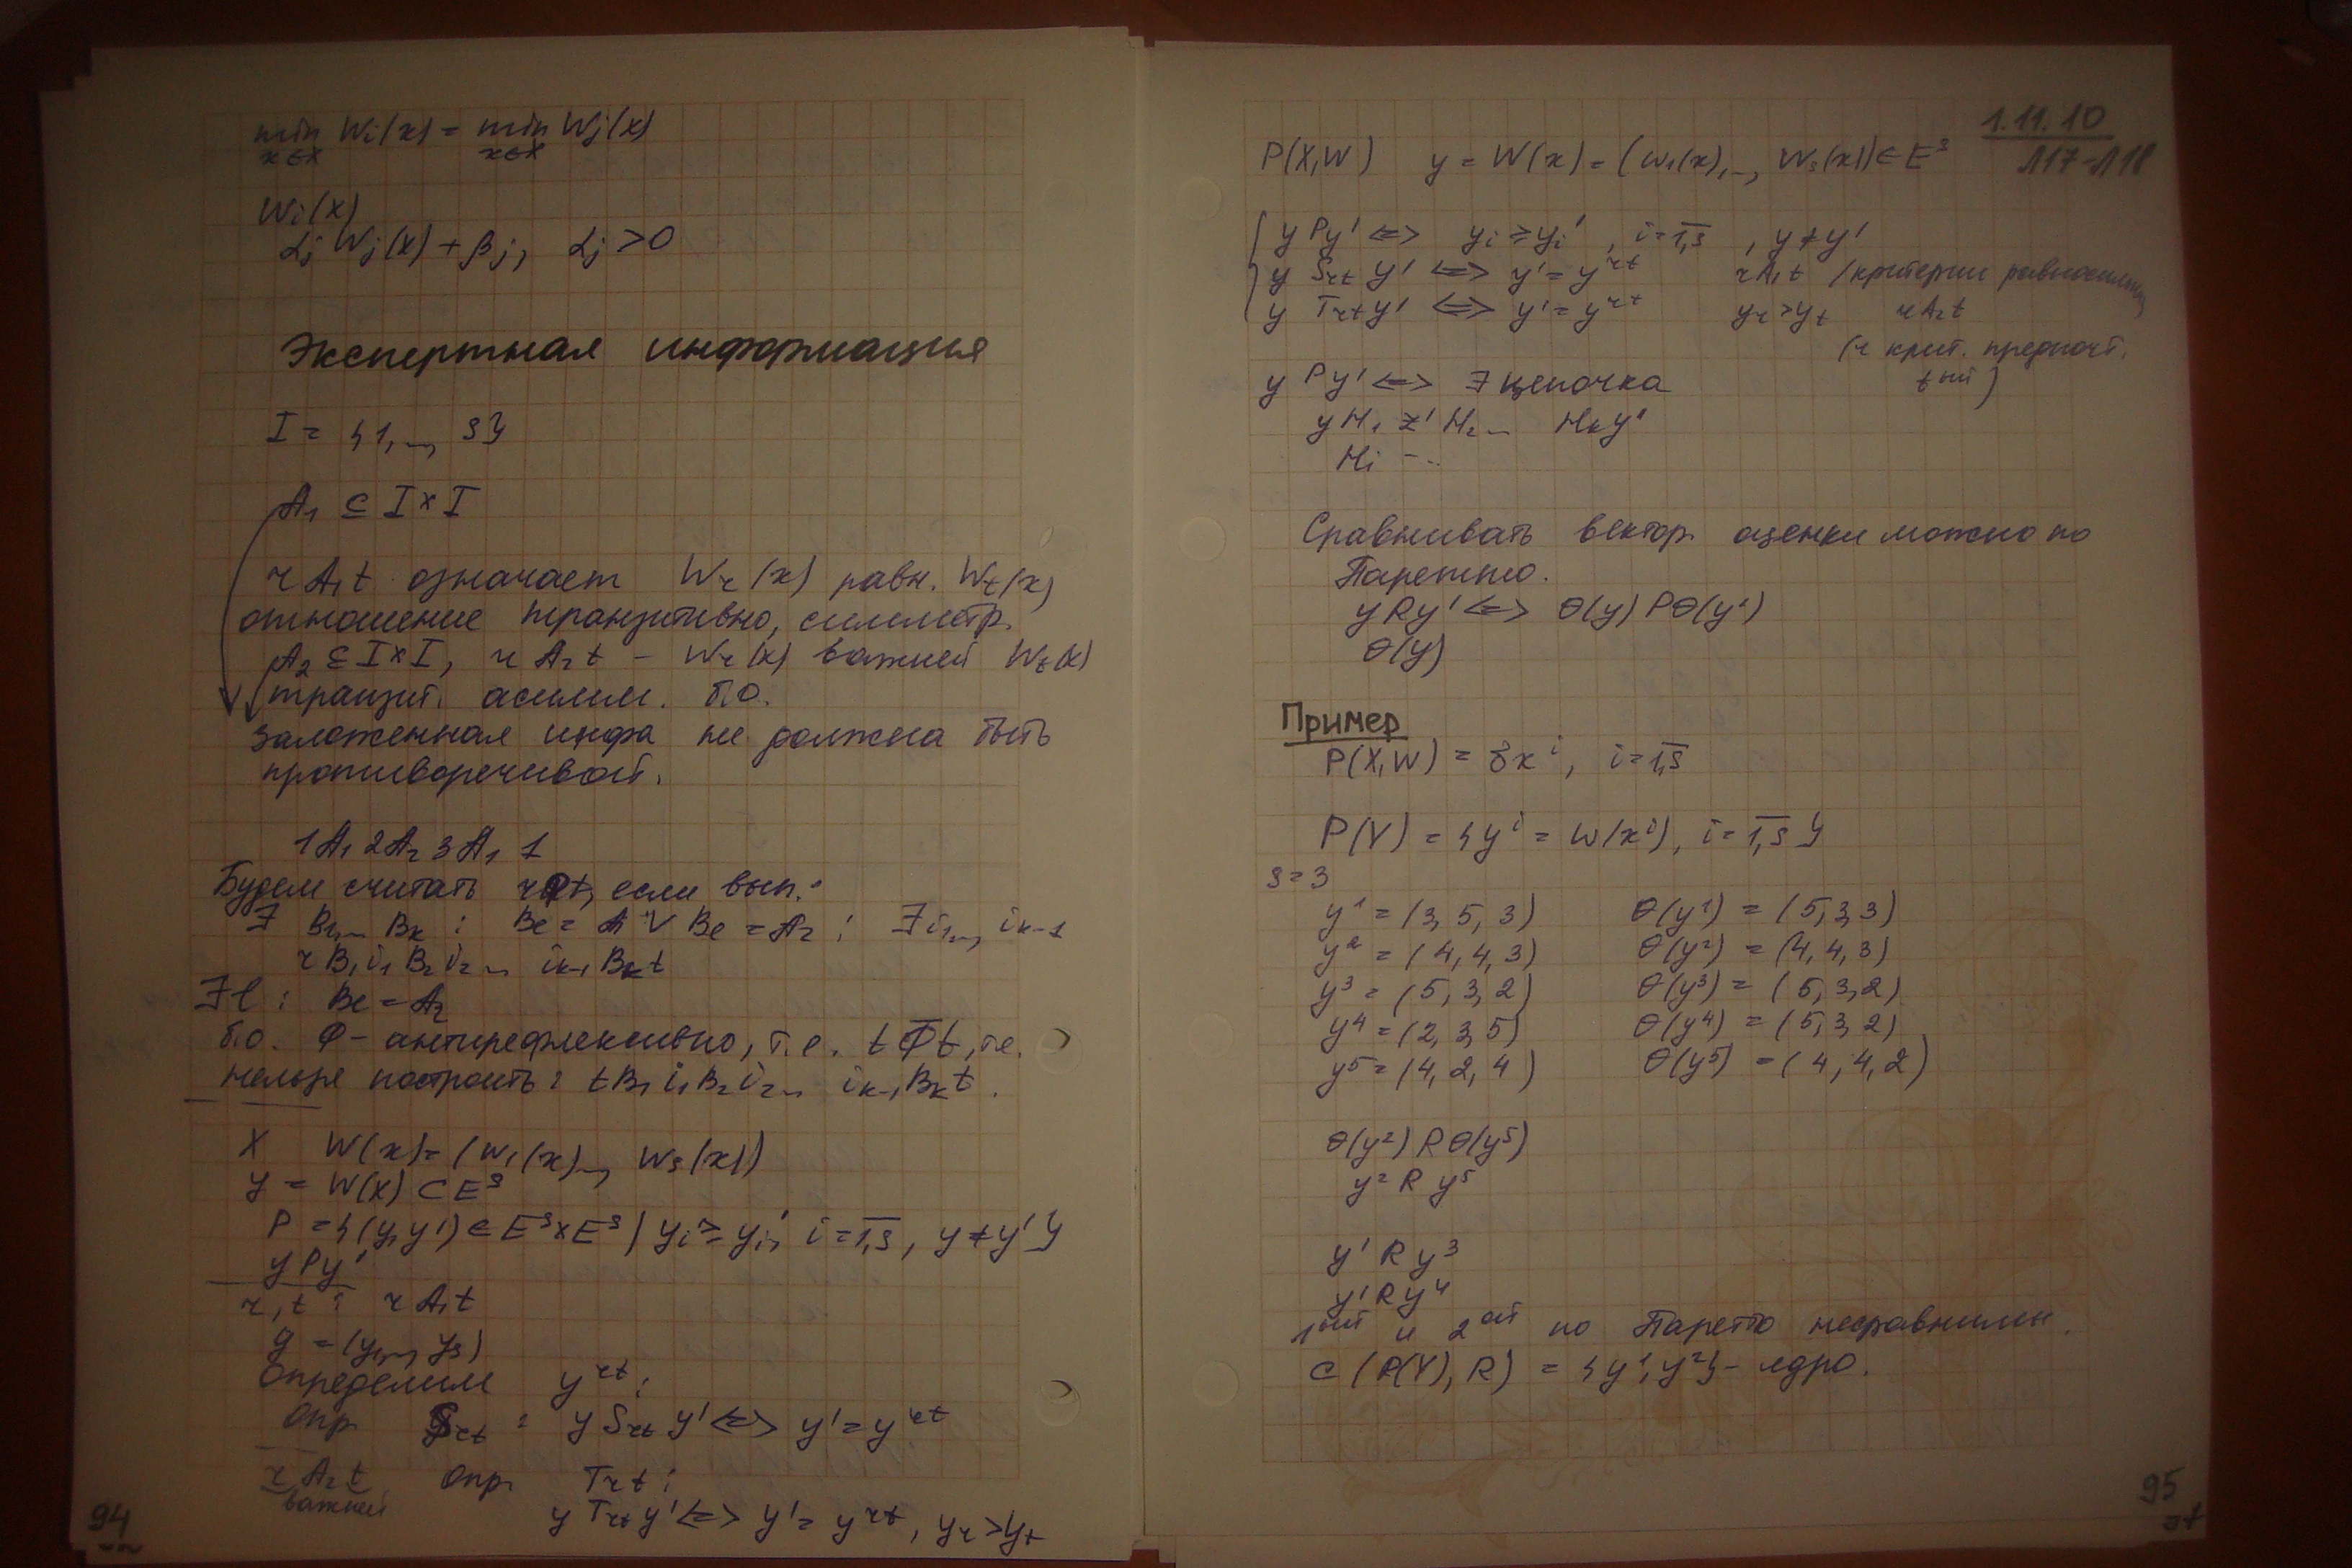 min Wi(x) = min Wj(x)
x∈X x∈X
Wi(x)
αj Wj(x) + βj, αj > 0
Экспертная информация
I = {1,..., s}
A₁ ⊆ I × I
r A₁ t означает Wr(x) равн. Wt(x)
отношение транзитивно, симметр.
A₂ ⊆ I × I, r A₂ t – Wr(x) важней Wt(x)
транзит. асимм. б.о.
заложенная инфа не должна быть
противоречивой.
1 A₁ 2 A₂ 3 A₁ 1
Будем считать r Φ t, если вып.:
∃ B₁,... Bk : Bℓ = A₁ ∨ Bℓ = A₂ : ∃ i₁,..., ik-1
r B₁ i₁ B₂ i₂ ... ik-1 Bk t
∃ ℓ : Bℓ = A₂
б.о. Φ – антирефлексивно, т.е. t Φ̅ t, т.е.
нельзя построить: t B₁ i₁ B₂ i₂ ... ik-1 Bk t.
X W(x) = (w₁(x),..., ws(x))
y = W(x) ⊂ Eˢ
P = {(y, y') ∈ Eˢ × Eˢ | yi ≥ yi', i = 1,s, y ≠ y'}
y P y'
r, t : r A₁ t
y = (y₁,..., ys)
Определим yʳᵗ :
Опр. Srt : y Srt y' <=> y' = yʳᵗ
r A₂ t Опр. Trt :
важней
y Trt y' <=> y' = yʳᵗ, yr > yt
94
1.11.10
Л17-Л18
P(X,W) y = W(x) = (w₁(x),..., Ws(x)) ∈ Eˢ
y P y' <=> yi ≥ yi', i = 1,s, y ≠ y'
y Srt y' <=> y' = yʳᵗ r A₁ t (критерии равносильны)
y Trt y' <=> y' = yʳᵗ yr > yt r A₂ t
(r крит. предпочт.
t ый)
y P y' <=> ∃ цепочка
y H₁ z' H₂ ... Hk y'
Hi - ..
Сравнивать вектор. оценки можно по
Паретто.
y R y' <=> θ(y) P θ(y')
θ(y)
Пример
P(X,W) = {x ⁱ, i = 1,s
P(Y) = {y ⁱ = W(x ⁱ), i = 1,s}
s = 3
y¹ = (3, 5, 3) θ(y¹) = (5, 3, 3)
y² = (4, 4, 3) θ(y²) = (4, 4, 3)
y³ = (5, 3, 2) θ(y³) = (5, 3, 2)
y⁴ = (2, 3, 5) θ(y⁴) = (5, 3, 2)
y⁵ = (4, 2, 4) θ(y⁵) = (4, 4, 2)
θ(y²) R θ(y⁵)
y² R y⁵
y¹ R y³
y¹ R y⁴
1 ый и 2 ой по Парето несравнимы.
C (P(Y), R) = {y¹, y²} – ядро.
95